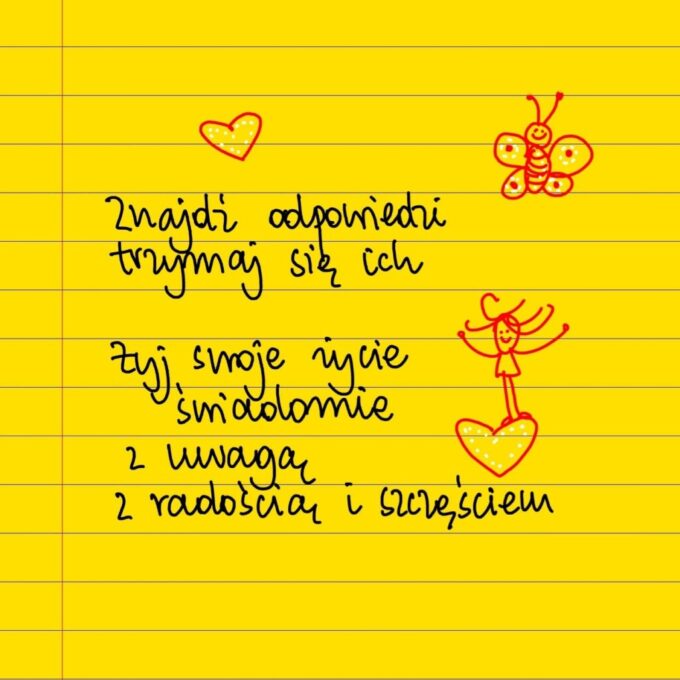 Znajdź odpowiedzi
trzymaj się ich
Żyj swoje życie
świadomie
z uwagą
z radością i szczęściem